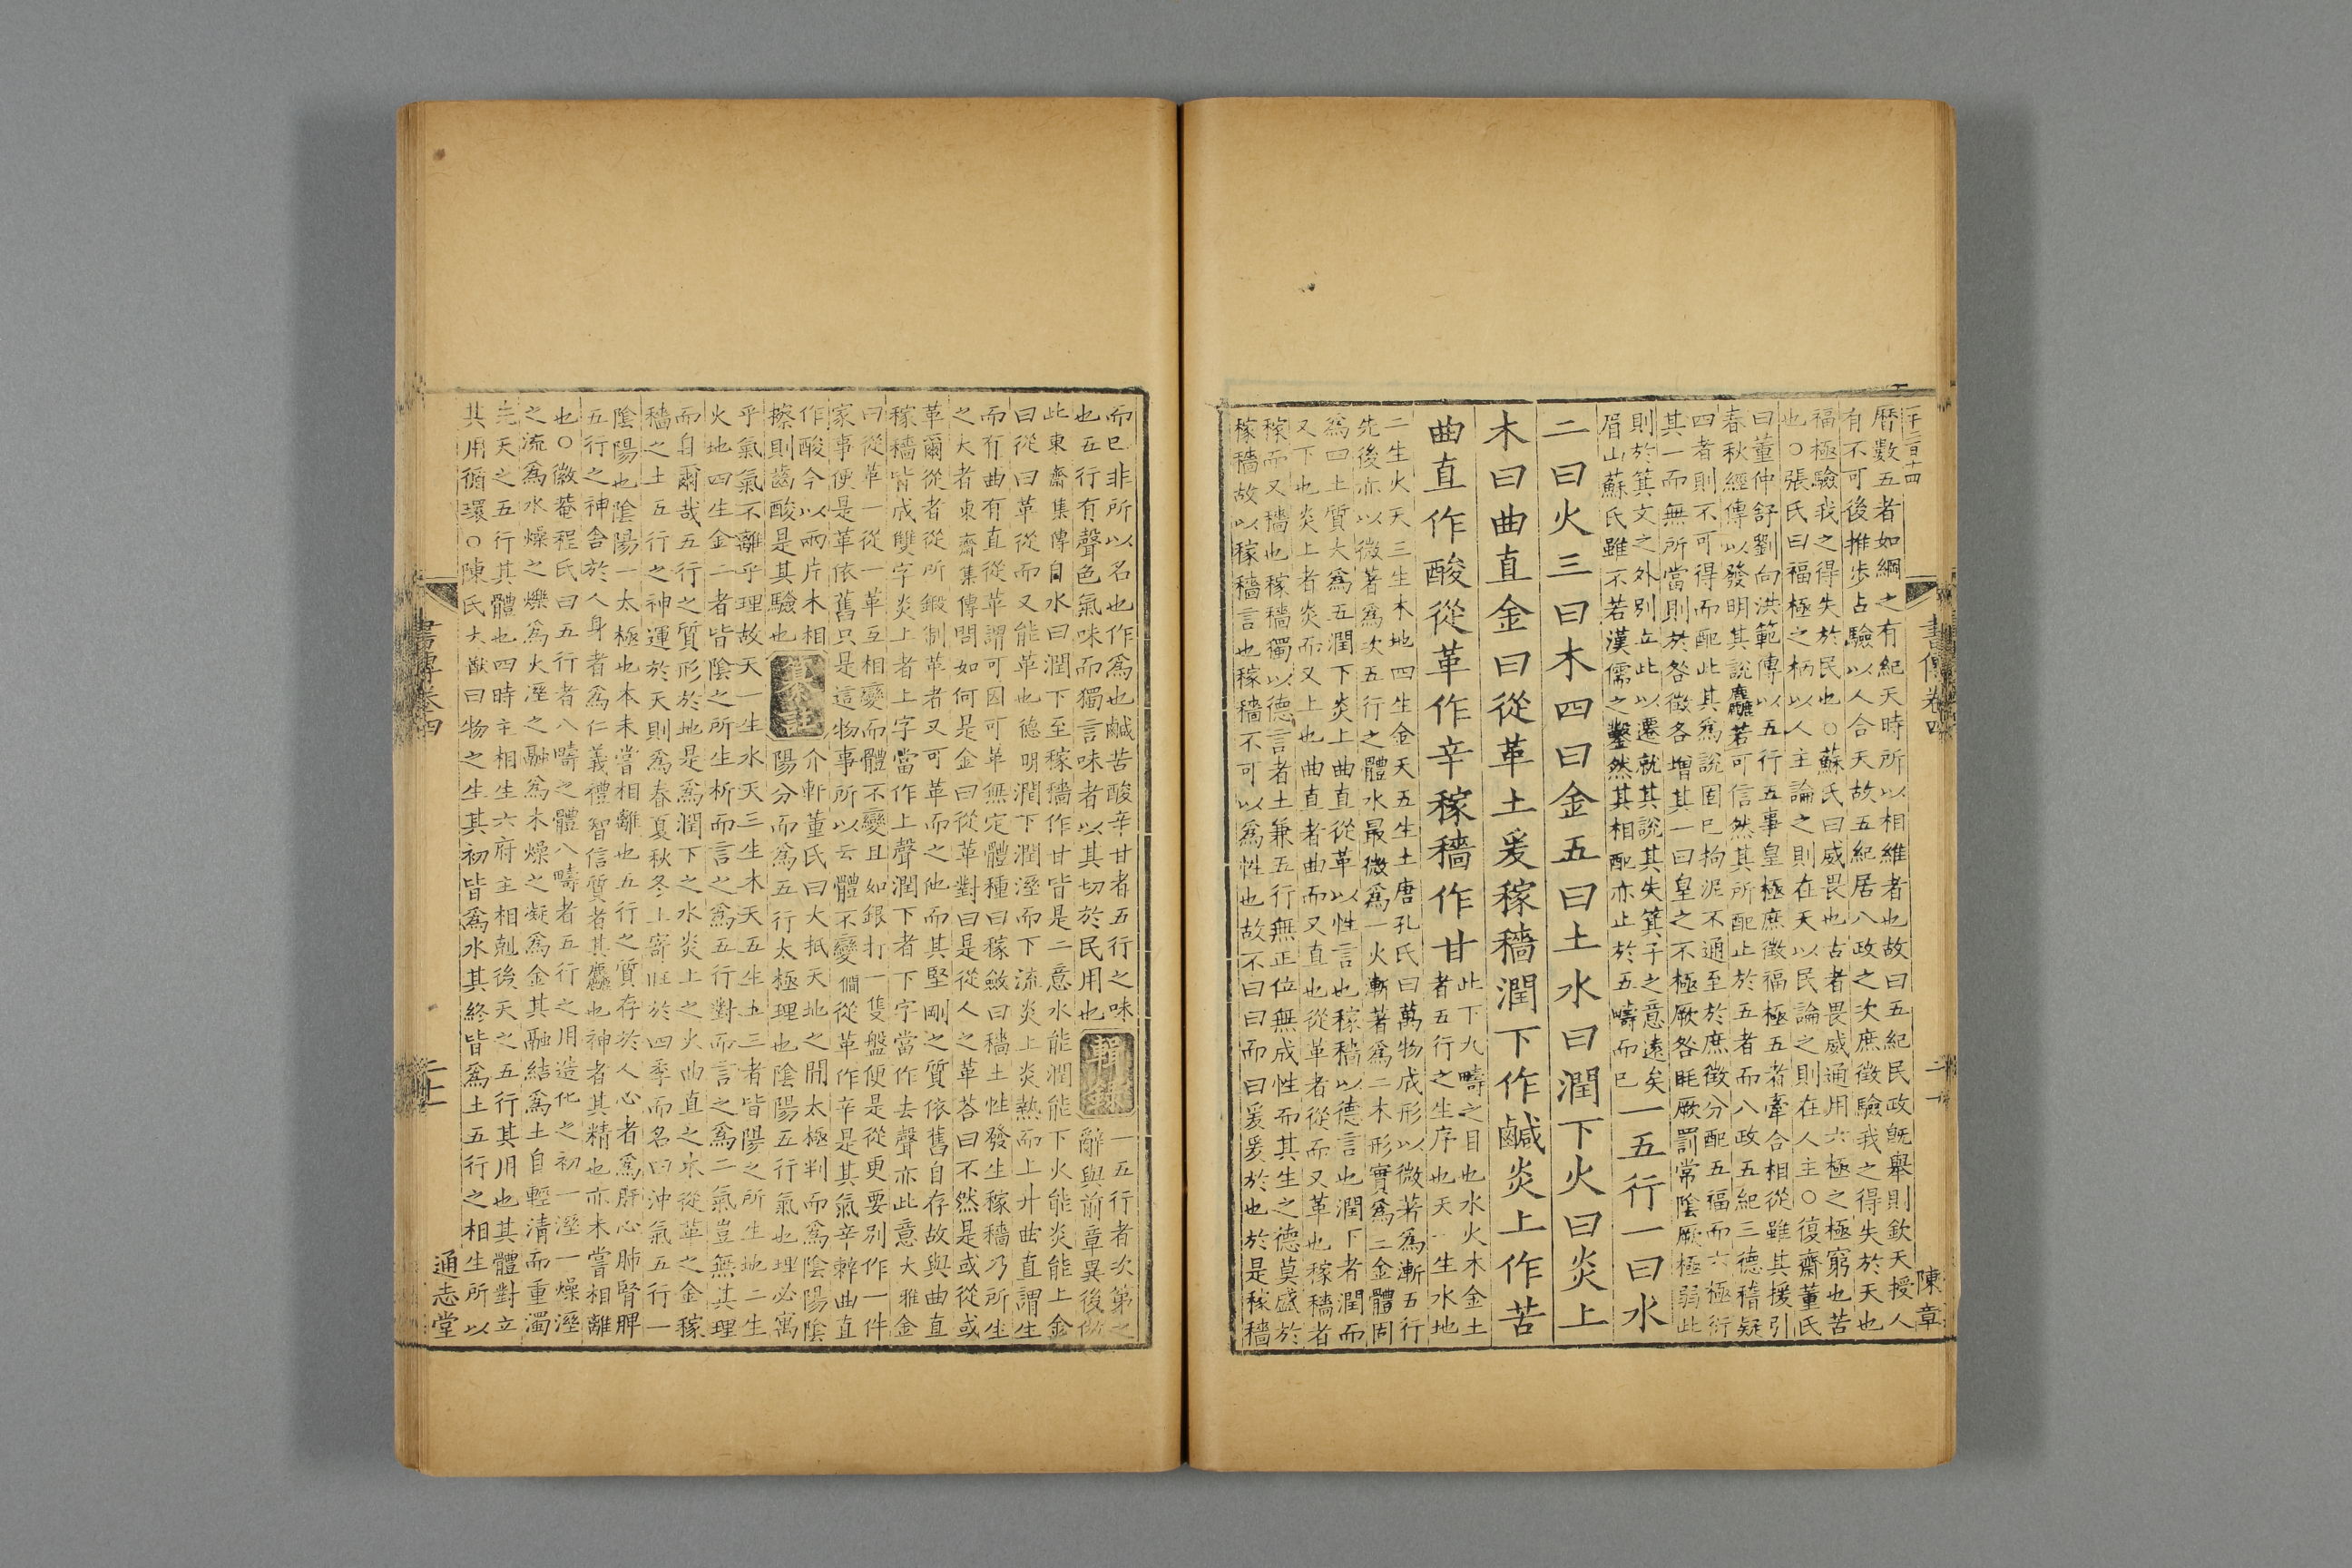 二百十四
書傳卷四
陳章
曆數五者如綱之有紀天時所以相維者也故曰五紀民政旣舉則欽天授人
有不可後推步占驗以人合天故五紀居八政之次庶徵驗我之得失於天也
福極驗我之得失於民也○蘇氏曰威畏也古者畏威通用六極之極窮也苦
也○張氏曰福極之柄以人主論之則在天以民論之則在人主○復齋董氏
曰董仲舒劉向洪範傳以五行五事皇極庶徵福極五者牽合相從雖其援引
春秋經傳以發明其說麤若可信然其所配止於五者而八政五紀三德稽疑
四者則不可得而配此其爲說固已拘泥不通至於庶徵分配五福而六極衍
其一而無所當則於咎徵各增其一曰皇之不極厥咎眊厥罰常陰厥極弱此
則於箕文之外別立此以遷就其說其失箕子之意遠矣
眉山蘇氏雖不若漢儒之鑿然其相配亦止於五疇而已
一五行一曰水
二曰火三曰木四曰金五曰土水曰潤下火曰炎上
木曰曲直金曰從革土爰稼穡潤下作鹹炎上作苦
曲直作酸從革作辛稼穡作甘
此下九疇之目也水火木金土
者五行之生序也天一生水地
二生火天三生木地四生金天五生土唐孔氏曰萬物成形以微著爲漸五行
先後亦以微著爲次五行之體水最微爲一火漸著爲二木形實爲三金體固
爲四土質大爲五潤下炎上曲直從革以性言也稼穡以德言也潤下者潤而
又下也炎上者炎而又上也曲直者曲而又直也從革者從而又革也稼穡者
稼而又穡也稼穡獨以德言者土兼五行無正位無成性而其生之德莫盛於
稼穡故以稼穡言也稼穡不可以爲性也故不曰曰而曰爰爰於也於是稼穡
而已非所以名也作爲也鹹苦酸辛甘者五行之味
也五行有聲色氣味而獨言味者以其切於民用也
輯錄
一五行者次第之
辭與前章異後倣
此東齋集傳自水曰潤下至稼穡作甘皆是二意水能潤能下火能炎能上金
曰從曰革從而又能革也德明潤下潤溼而下流炎上炎熱而上升曲直謂生
而有曲有直從革謂可因可革無定體種曰稼斂曰穡土性發生稼穡乃所生
之大者東齋集傳問如何是金曰從革對曰是從人之革荅曰不然是或從或
革爾從者從所鍛制革者又可革而之他而其堅剛之質依舊自存故與曲直
稼穡皆成雙字炎上者上字當作上聲潤下者下字當作去聲亦此意大雅金
曰從革一從一革互相變而體不變且如銀打一隻盤便是從更要別作一件
家事便是革依舊只是這物事所以云體不變僩從革作辛是其氣辛辣曲直
作酸今以兩片木相
擦則齒酸是其驗也
纂註
介軒董氏曰大抵天地之閒太極判而爲陰陽陰
陽分而爲五行太極理也陰陽五行氣也理必寓
乎氣氣不離乎理故天一生水天三生木天五生土三者皆陽之所生地二生
火地四生金二者皆陰之所生析而言之爲五行對而言之爲二氣豈無其理
而自爾哉五行之質形於地是爲潤下之水炎上之火曲直之木從革之金稼
穡之土五行之神運於天則爲春夏秋冬土寄旺於四季而名曰沖氣五行一
陰陽也陰陽一太極也本未嘗相離也五行之質存於人心者爲肝心肺腎脾
五行之神舍於人身者爲仁義禮智信質者其麤也神者其精也亦未嘗相離
也○徽菴程氏曰五行者八疇之體八疇者五行之用造化之初一溼一燥溼
之流爲水燥之爍爲火溼之融爲木燥之凝爲金其融結爲土自輕清而重濁
先天之五行其體也四時主相生六府主相剋後天之五行其用也其體對立
其用循環○陳氏大猷曰物之生其初皆爲水其終皆爲土五行之相生所以
書傳卷四
通志堂